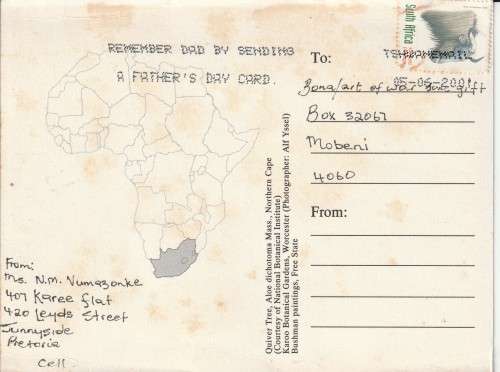 REMEMBER DAD BY SENDING
A FATHER'S DAY CARD.
South Africa
To:
TSHWANEMAIL
05-06-200
Bona/art of war gift
Box 32067
Mobeni
4060
From:
Quiver Tree, Aloe dichotoma Mass., Northern Cape
(Courtesy of National Botanical Institute)
Karoo Botanical Gardens, Worcester (Photographer: Alf Yssel)
Bushman paintings, Free State
From:
Ms. N.M. Vumazonke
407 Karee flat
420 Leyds Street
Sunnyside
Pretoria
Cell